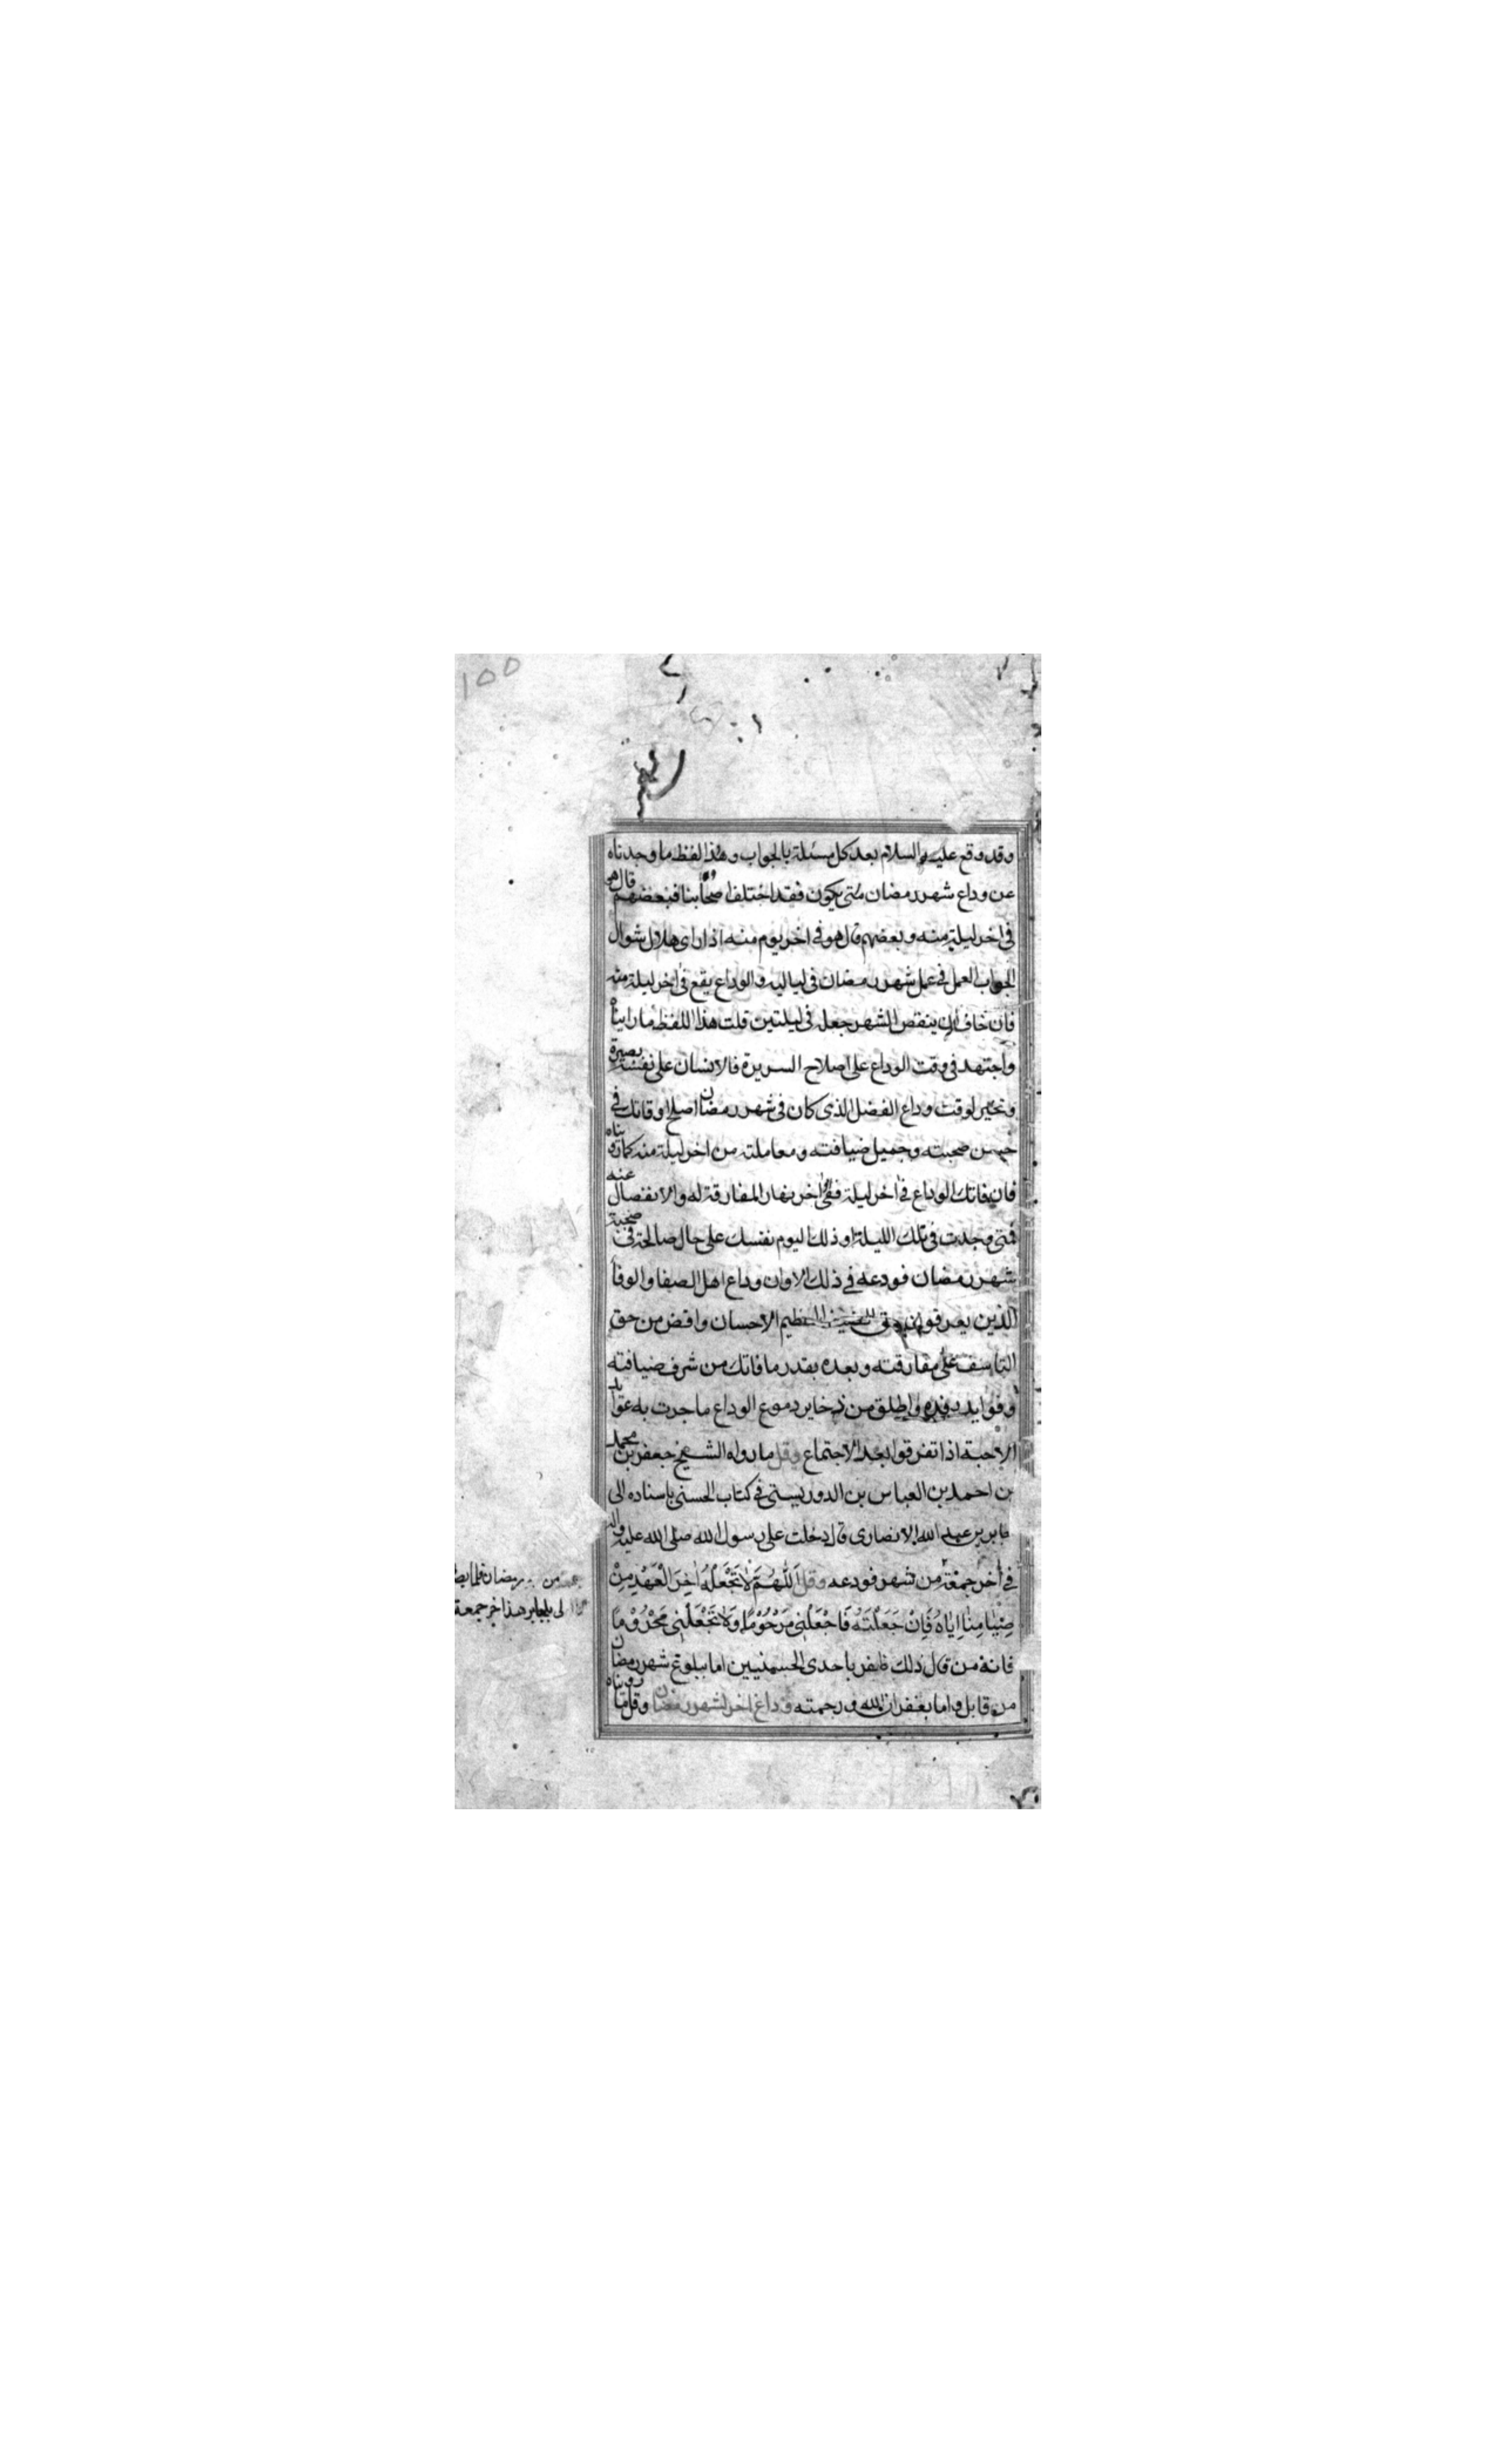 ١٥٥
وقد وقع عليه السلام بعد كل مسئلة بالجواب وهذا لفظ ما وجدناه
عن وداع شهر رمضان متى يكون فقد اختلف اصحابنا فبعضهم قال هو
فى اخر ليلة منه وبعضهم قال هو فى اخر يوم منه اذا راى هلال شوال
الجواب العمل فى عمل شهر رمضان فى لياليه والوداع يقع فى اخر ليلة منه
فان خاف ان ينقص الشهر جعله فى ليلتين قلت هذا اللفظ ما رايناه
واجتهد فى وقت الوداع على اصلاح السريرة فالانسان على نفسه بصيرة
وتخير لوقت وداع الفضل الذى كان فى شهر رمضان اصلح اوقاتك فى
حسن صحبته وجميل ضيافته ومعاملته من اخر ليلة منه كما رويناه
فان فاتك الوداع فى اخر ليلة ففى اخر نهار المفارقة له والانفصال عنه
فمتى وجدت فى تلك الليلة او ذلك اليوم نفسك على حال صالحة فى صحبة
شهر رمضان فودعه فى ذلك الاوان وداع اهل الصفا والوفا
الذين يعرفون حق العظيم الاحسان واقض من حق
التاسف على مفارقته وبعده بقدر ما فاتك من شرف ضيافته
وفوايد رفده واطلق من ذخاير دموع الوداع ما جرت به عوايد
الاحبة اذا تفرقوا بعد الاجتماع وقل ما رواه الشيخ جعفر بن محمد
بن احمد بن العباس بن الدوريستى فى كتاب الحسنى باسناده الى
جابر بن عبد الله الانصارى قال دخلت على رسول الله صلى الله عليه واله
فى اخر جمعة من شهر فودعه وقل اَللّٰهُمَّ لاٰ تَجْعَلْهُ اٰخِرَ الْعَهْدِ مِنْ
صِيٰامِنٰا اِيّٰاهُ فَاِنْ جَعَلْتَهُ فَاجْعَلْنِى مَرْحُوْمًا وَلاٰ تَجْعَلْنِى مَحْرُوْمًا
فانه من قال ذلك ظفر باحدى الحسنيين اما ببلوغ شهر رمضان
من قابل واما بغفران الله ورحمته وداع اخر لشهر رمضان وقل ما رويناه
من رمضان فلما
لى يا جابر هذا اخر جمعة